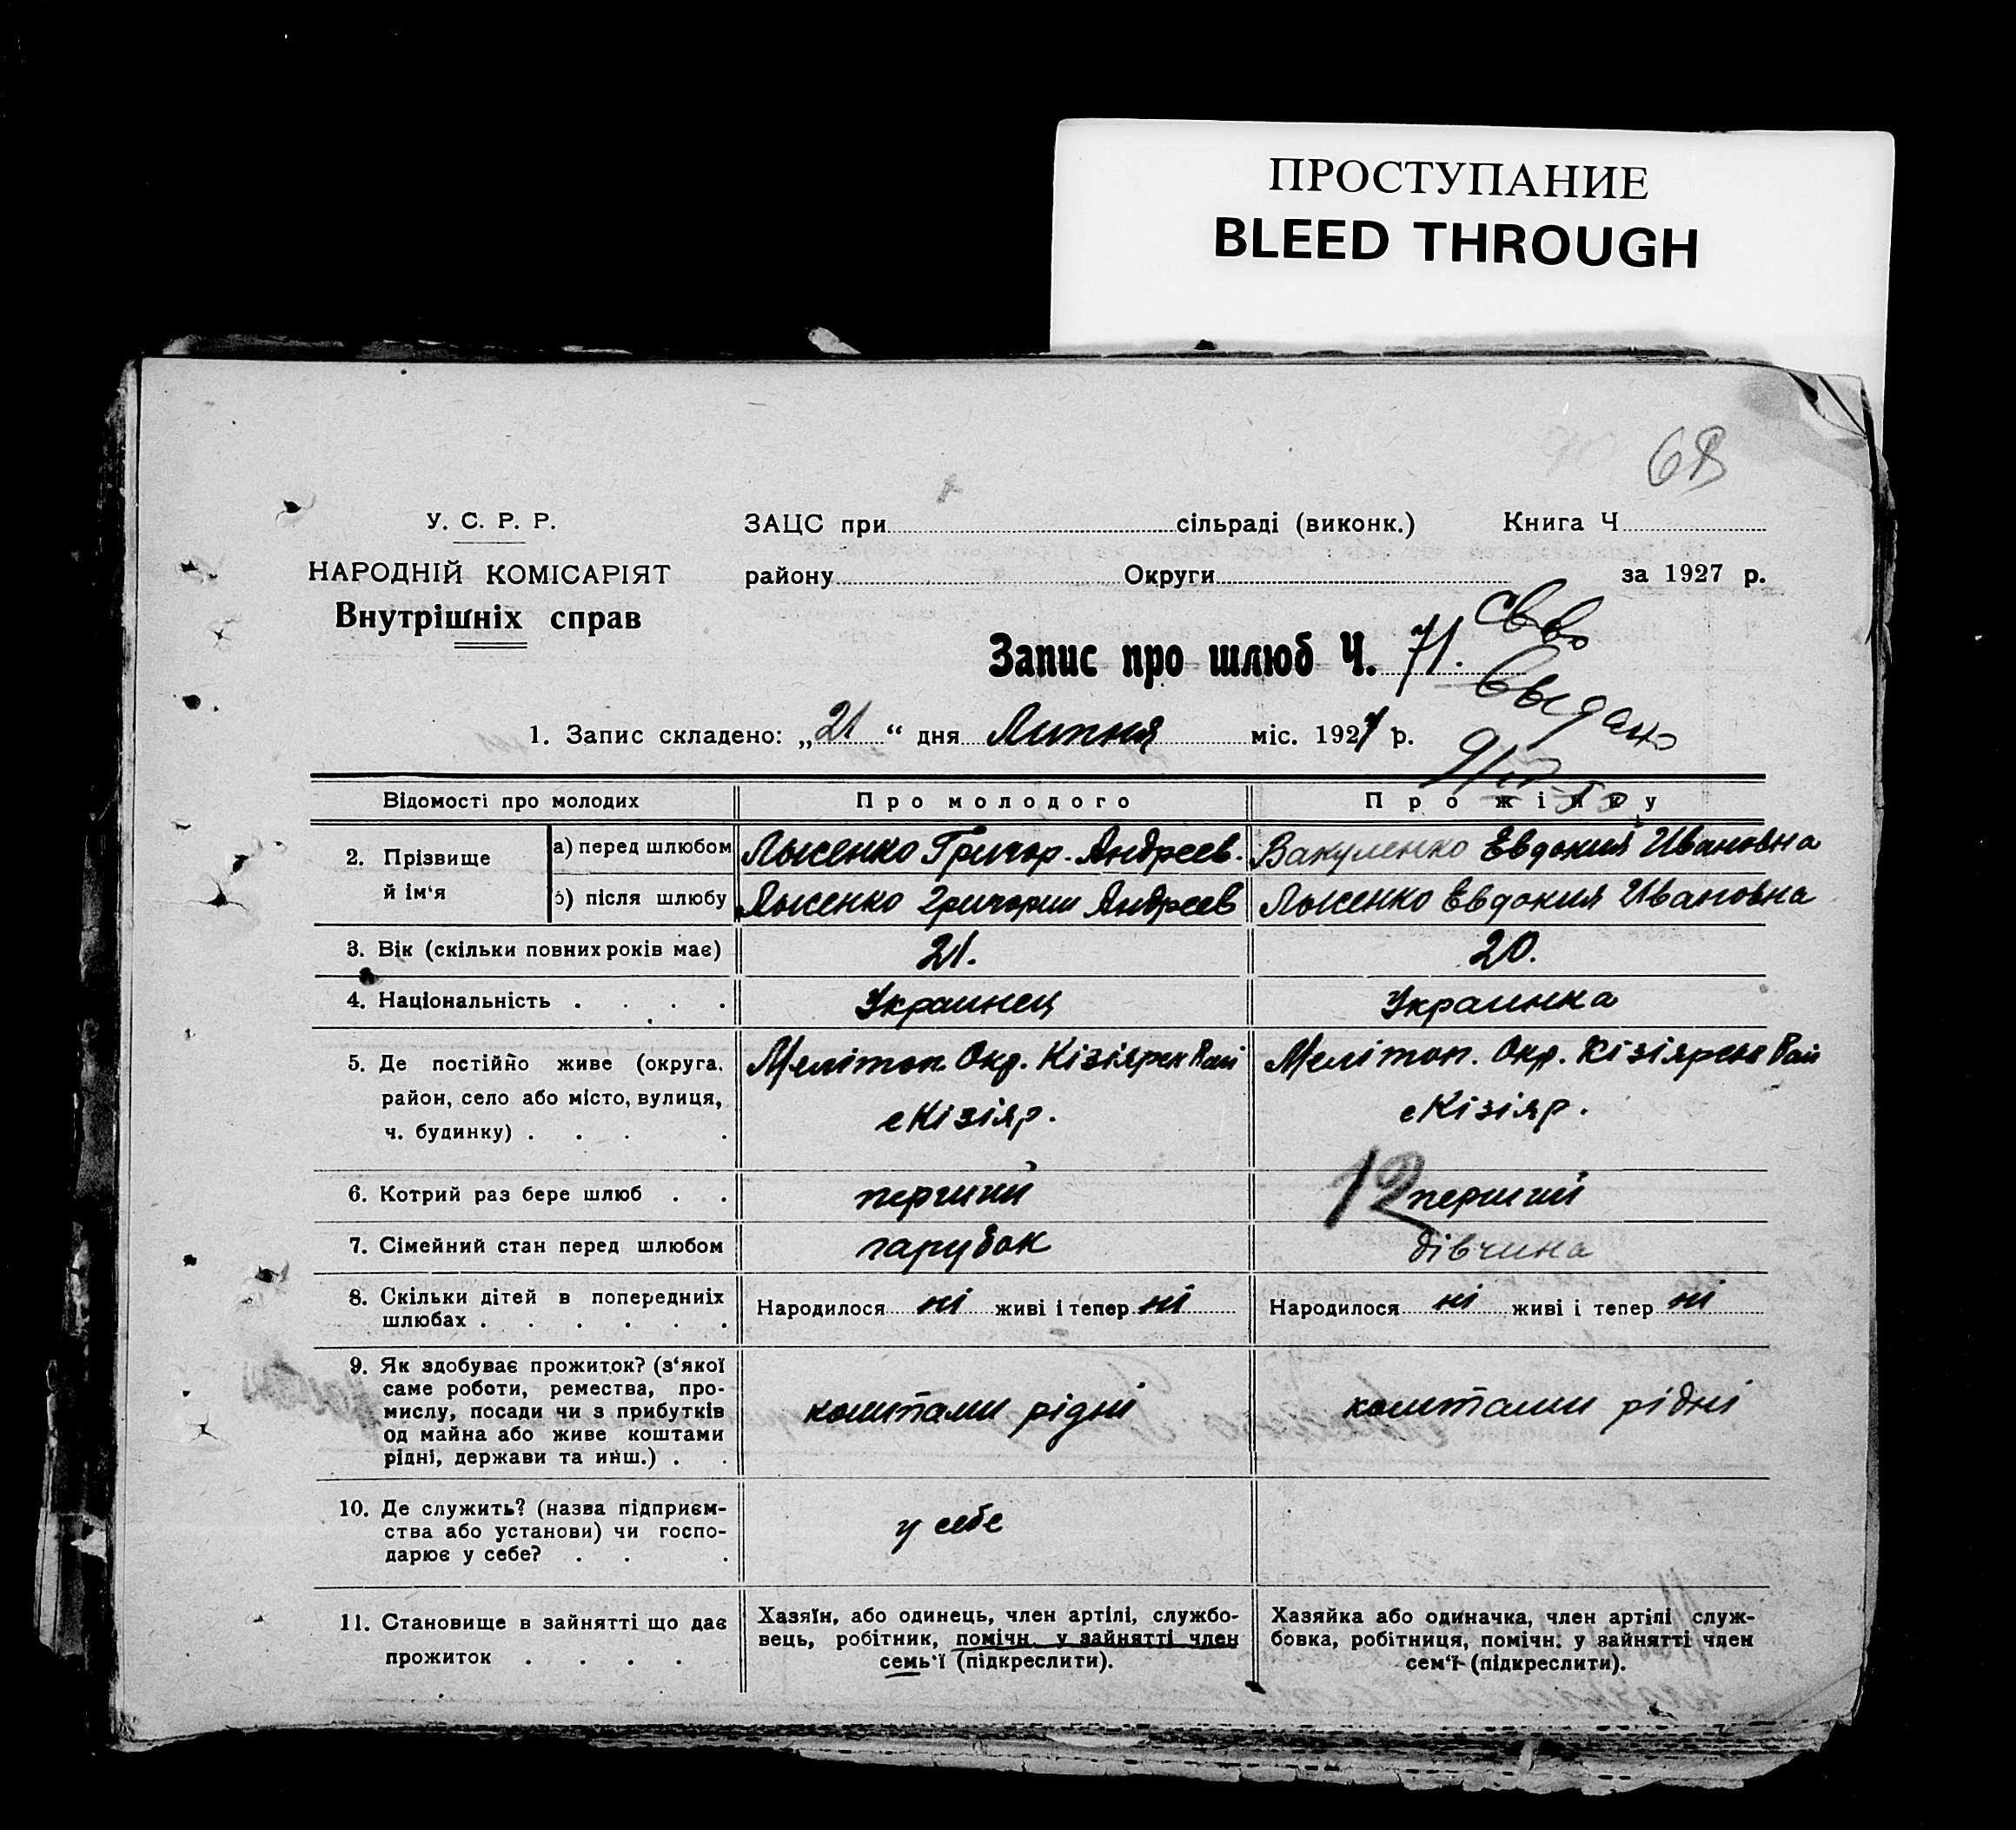 ПРОСТУПАНИЕ
BLEED THROUGH
68
У. С. Р. Р.
НАРОДНІЙ КОМІСАРІЯТ
Внутрішніх справ
ЗАЦС при сільраді (виконк.) Книга Ч
району Округи за 1927 р.
Запис про шлюб Ч. 71.
св-во
выдано
1. Запис складено: „21“ дня Липня міс. 1927 р.
Відомості про молодих Про молодого Про жінку
2. Прізвище й ім‘я
а) перед шлюбом Лысенко Григор. Андреев. Вакуленко Евдокия Ивановна
б) після шлюбу Лысенко Григории Андреев Лысенко Евдокия Ивановна
3. Вік (скільки повних років має) 21. 20.
4. Національність . . . . Украинец Украинка
5. Де постійно живе (округа, Мелітоп. Окр. Кізіярск Рай Мелітоп. Окр. Кізіярськ Рай
район, село або місто, вулиця, с Кізіяр. с Кізіяр.
ч. будинку) . . . .
12
6. Котрий раз бере шлюб . . перший перший
7. Сімейний стан перед шлюбом парубок дівчина
8. Скільки дітей в попередниіх Народилося ні живі і тепер ні Народилося ні живі і тепер ні
шлюбах . . . . . .
9. Як здобуває прожиток? (з‘якої
саме роботи, ремества, про-
мислу, посади чи з прибутків коштами рідні коштами рідні
од майна або живе коштами
рідні, держави та инш.) . .
10. Де служить? (назва підприєм-
ства або установи) чи госпо- у себе
дарює у себе? . . .
11. Становище в зайнятті що дає
прожиток . . . .
Хазяїн, або одинець, член артілі, службо-
вець, робітник, помічн. у зайнятті член
семь‘ї (підкреслити).
Хазяйка або одиначка, член артілі служ-
бовка, робітниця, помічн. у зайнятті член
сем‘ї (підкреслити).